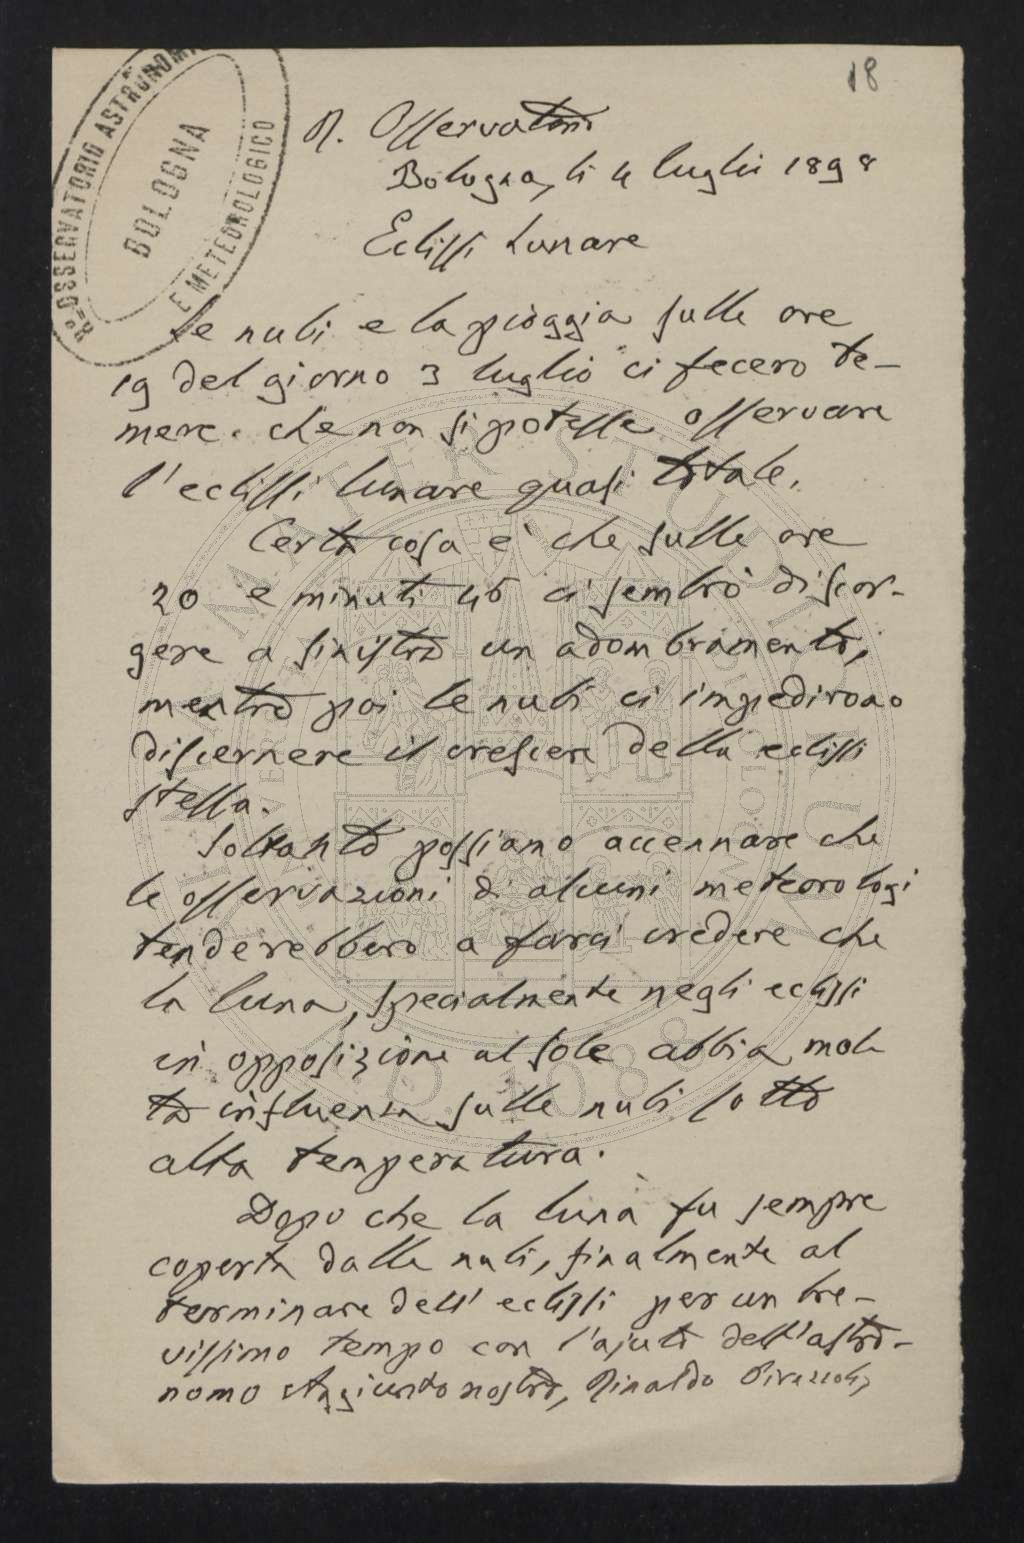 18
R.° OSSERVATORIO ASTRONOMI
BOLOGNA
E METEOROLOGICO
R. Osservatorio
Bologna, li 4 luglio 1898
Eclissi Lunare
Le nubi e la pioggia sulle ore
19 del giorno 3 luglio ci fecero te-
mere che non si potesse osservare
l'eclissi lunare quasi totale.
Certa cosa è che sulle ore
20 e minuti 46 ci sembrò discor-
gere a sinistra un adombramento,
mentre poi le nubi ci impedirono
discernere il crescere della eclissi
stessa.
Soltanto possiamo accennare che
le osservazioni di alcuni meteorologi
tenderebbero a farci credere che
la luna, specialmente negli eclissi
in opposizione al sole abbia mol
ta influenza sulle nubi sotto
alta temperatura.
Dopo che la luna fu sempre
coperta dalle nubi, finalmente al
terminare dell'eclissi per un bre-
vissimo tempo con l'ajuto dell'astro-
nomo Aggiunto nostro, Rinaldo Pirazzoli,
ALMA MATER STUDIORUM
A.D. 1088